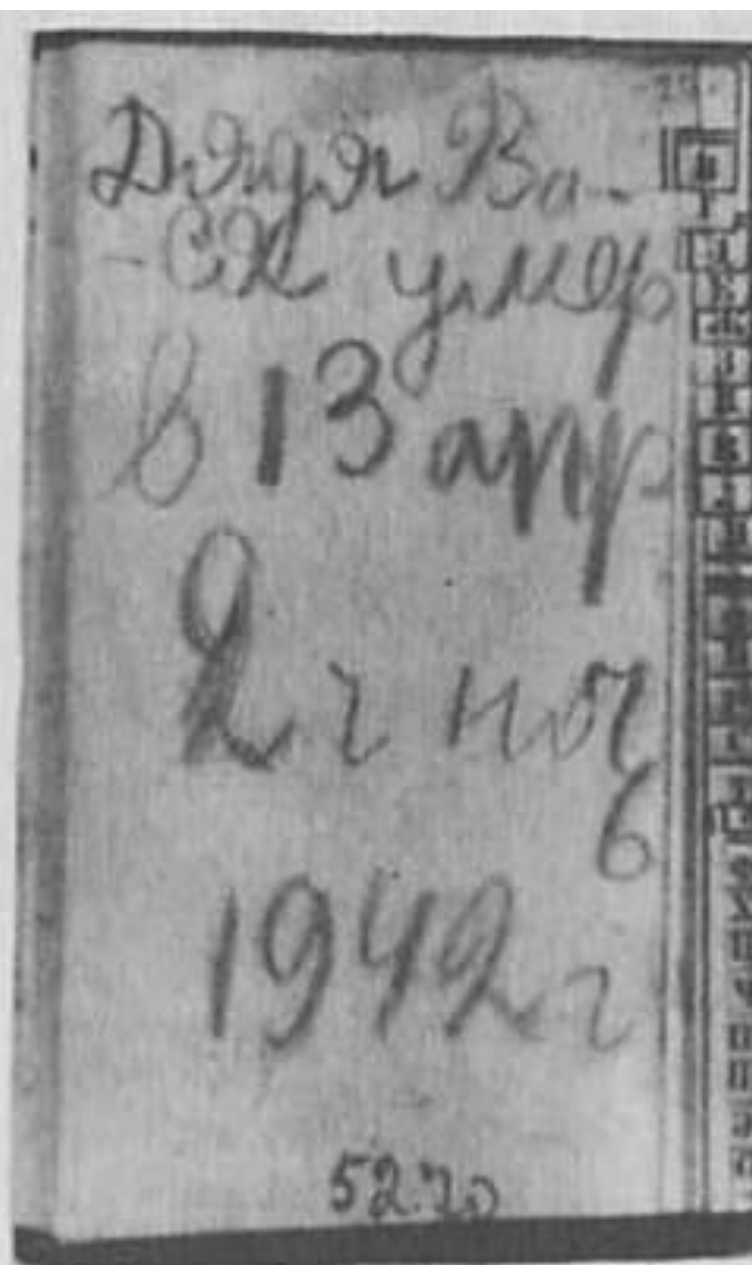 Дядя Ва-
-ся умер
в 13 апр
2 ч ноч
ь
1942 г
52.70